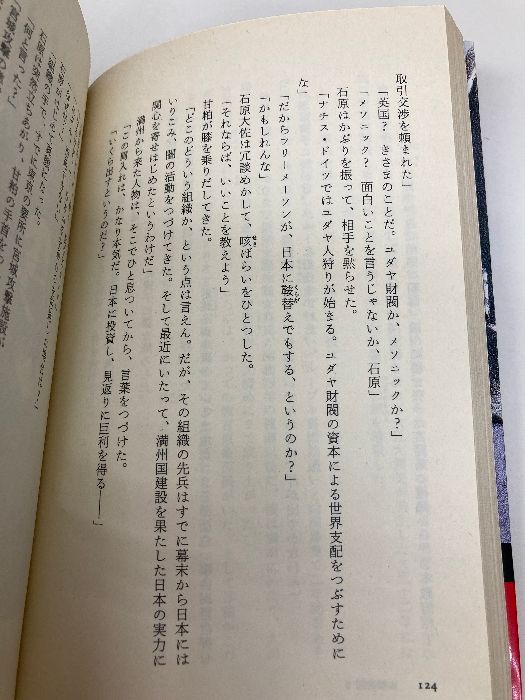 取引交渉を頼まれた」
「英国？　きさまのことだ。ユダヤ財閥か、メソニックか？」
「メソニック？　面白いことを言うじゃないか、石原」
石原はかぶりを振って、相手を黙らせた。
「ナチス・ドイツではユダヤ人狩りが始まる。ユダヤ財閥の資本による世界支配をつぶすために
な」
「だからフリーメーソンが、日本に鼓替えでもする、というのか？」
「かもしれんな」
石原大佐は冗談めかして、咳ばらいをひとつした。
「それならば、いいことを教えよう」
甘粕が膝を乗りだしてきた。
「どこのどういう組織か、という点は言えん。だが、その組織の先兵はすでに幕末から日本には
いりこみ、闇の活動をつづけてきた。そして最近にいたって、満州国建設を果たした日本の実力に
関心を寄せはじめたというわけだ」
満州から来た人物は、そこでひと息ついてから、言葉をつづけた。
「この肩入れは、かなり本気だ。日本に投資し、見返りに巨利を得る——」
「いくら出すというのだ？」
124
石原は突然立ちあがり、甘粕の手首をつ
「何と言った？」